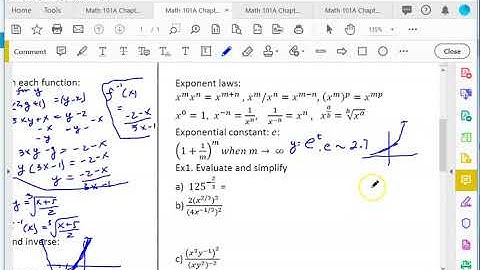 Math 101A Chapt...
Math 101A Chapt...
Math 101A Chapt...
Math 101A Chapt...
1 / 1
115%
Comment
n each function:
for y
y+1) = (y-2)
3xy+x = y-2
-x -x
-y -y
3xy-y = -2-x
y(3x-1) = -2-x
y = -2-x / 3x-1
f⁻¹(x) = -2-x / 3x-1
y = ³√(x+5 / 2)
⁻¹(x) = ³√(x+5 / 2)
nd inverse:
Exponent laws:
xᵐxⁿ = xᵐ⁺ⁿ, xᵐ/xⁿ = xᵐ⁻ⁿ, (xᵐ)ᵖ = xᵐᵖ
x⁰ = 1, x⁻ⁿ = 1/xⁿ, 1/x⁻ⁿ = xⁿ, x^(a/b) = ᵇ√xᵃ
Exponential constant: e:
(1 + 1/m)ᵐ when m → ∞ y = eᵗ, e ~ 2.7
Ex1. Evaluate and simplify
a) 125^(-2/3) =
b) 2(x^(2/3))³ / (4x^(-1/3))²
c) (x²y⁻¹)² / (xy²)⁻²